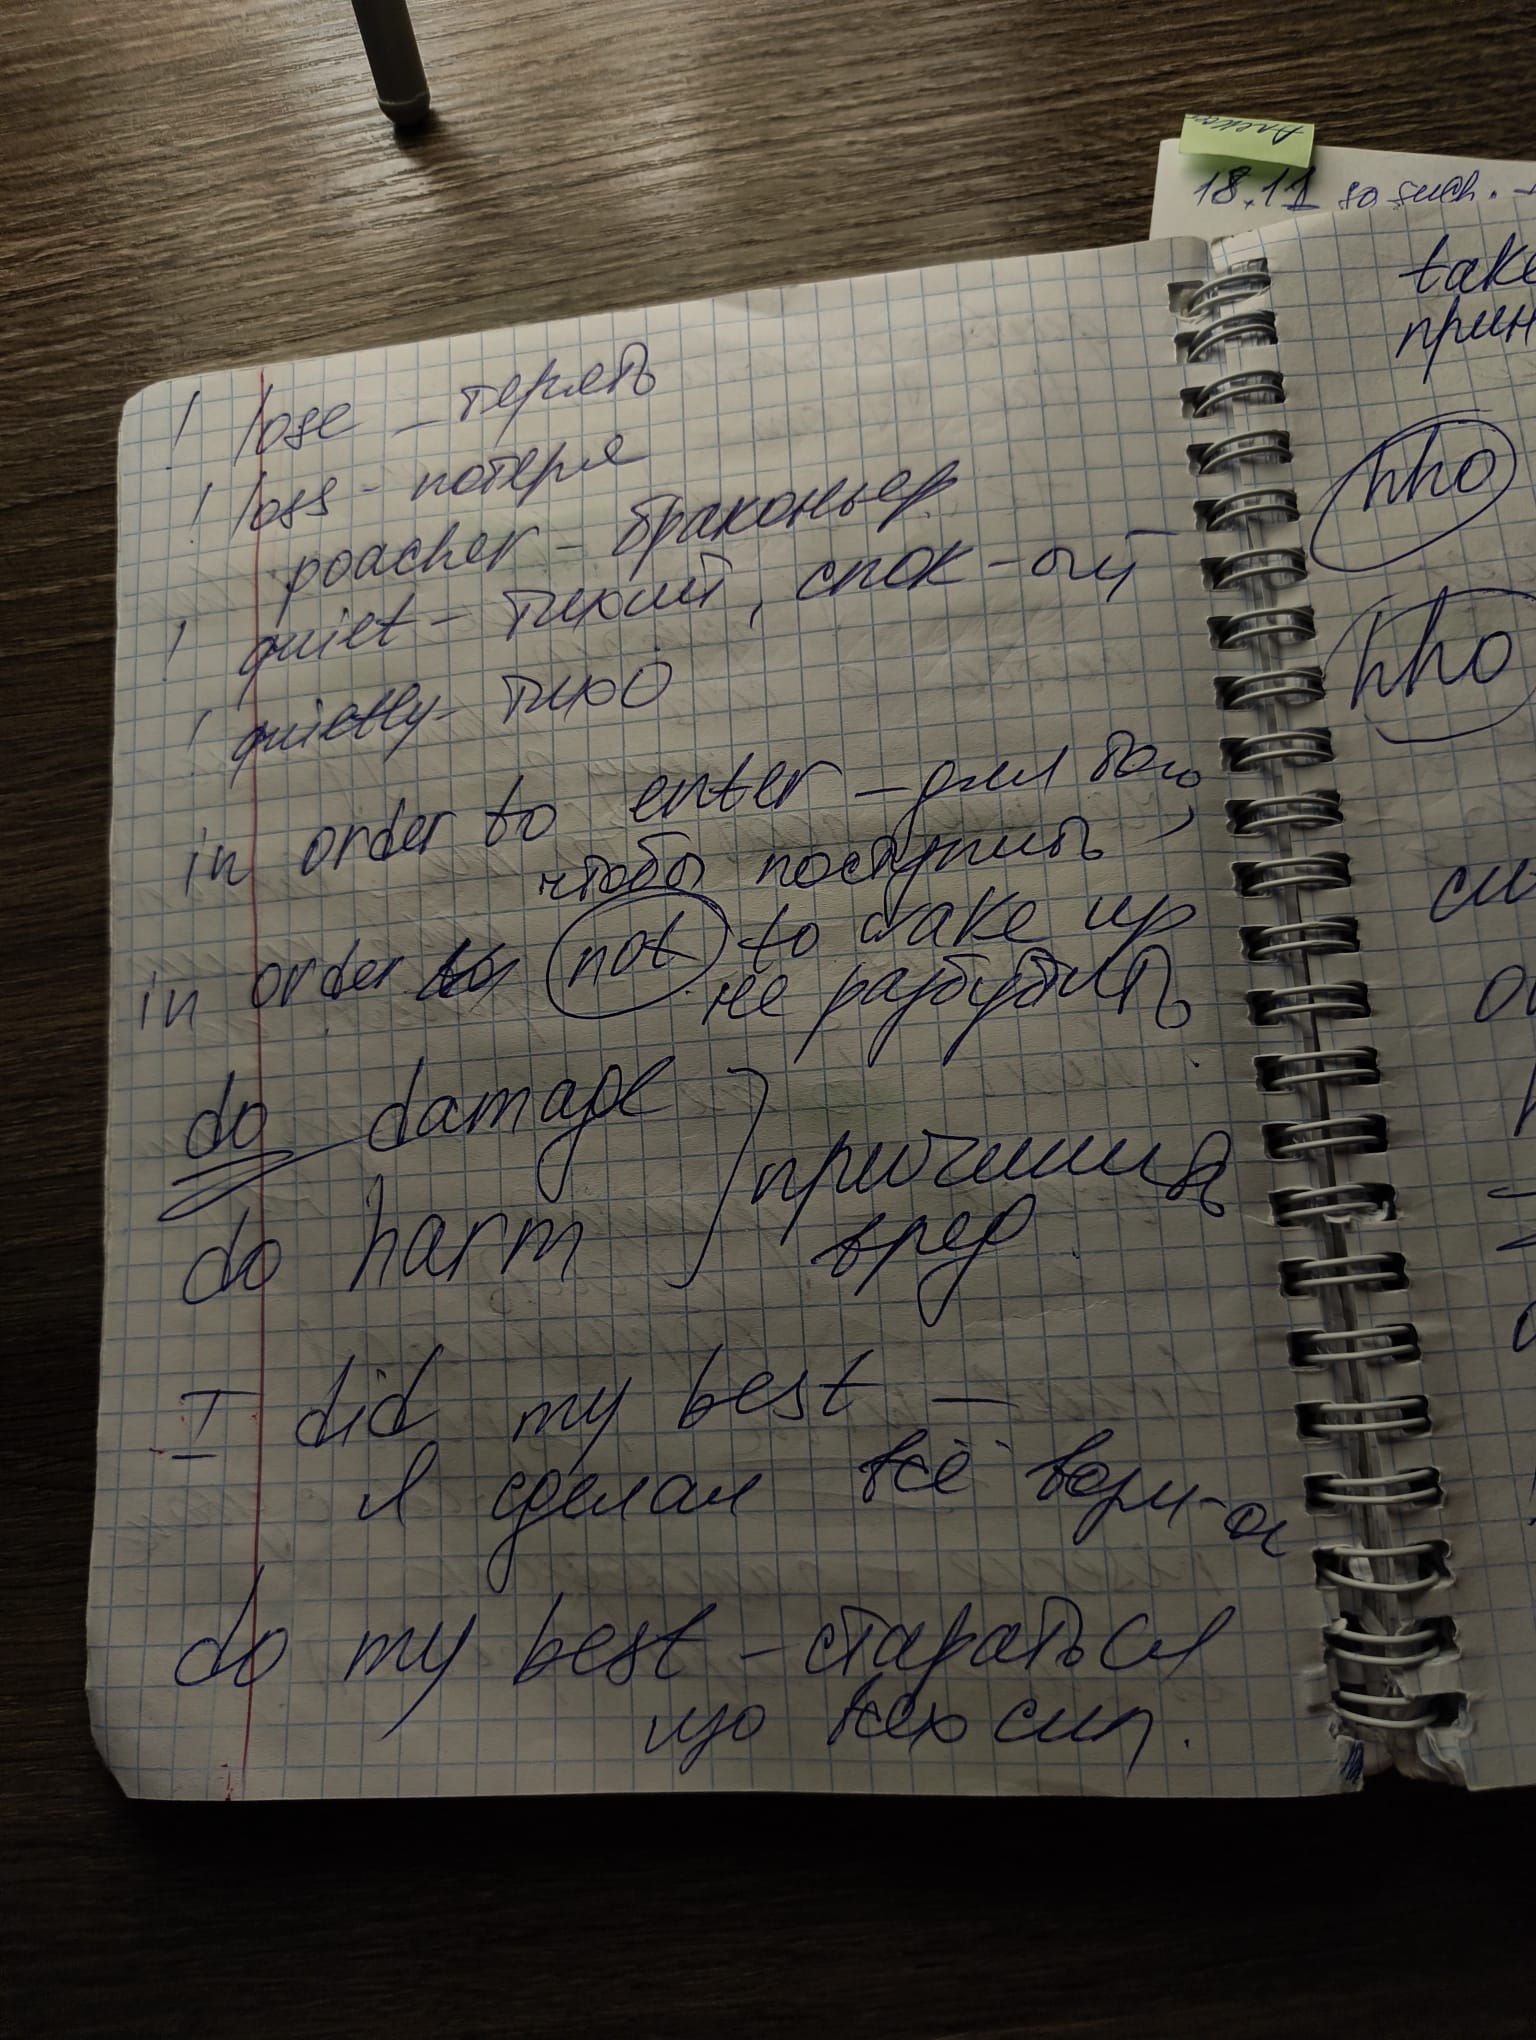 ! lose – терять
! loss – потеря
poacher – браконьер
! quiet – тихий, спок-ый
! quietly – тихо
in order to enter – для того,
чтобы поступить
in order not to wake up
не разбудить
do damage
причинить
do harm
вред.
I did my best –
я сделал всё
do my best – стараться
изо всех сил.
18.11 so such.
take
прин
who
who